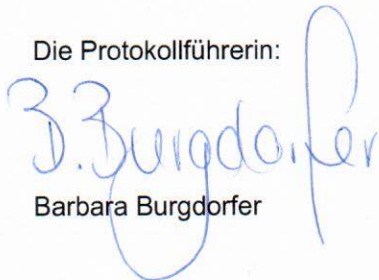 Die Protokollführerin:
B. Burgdorfer
Barbara Burgdorfer